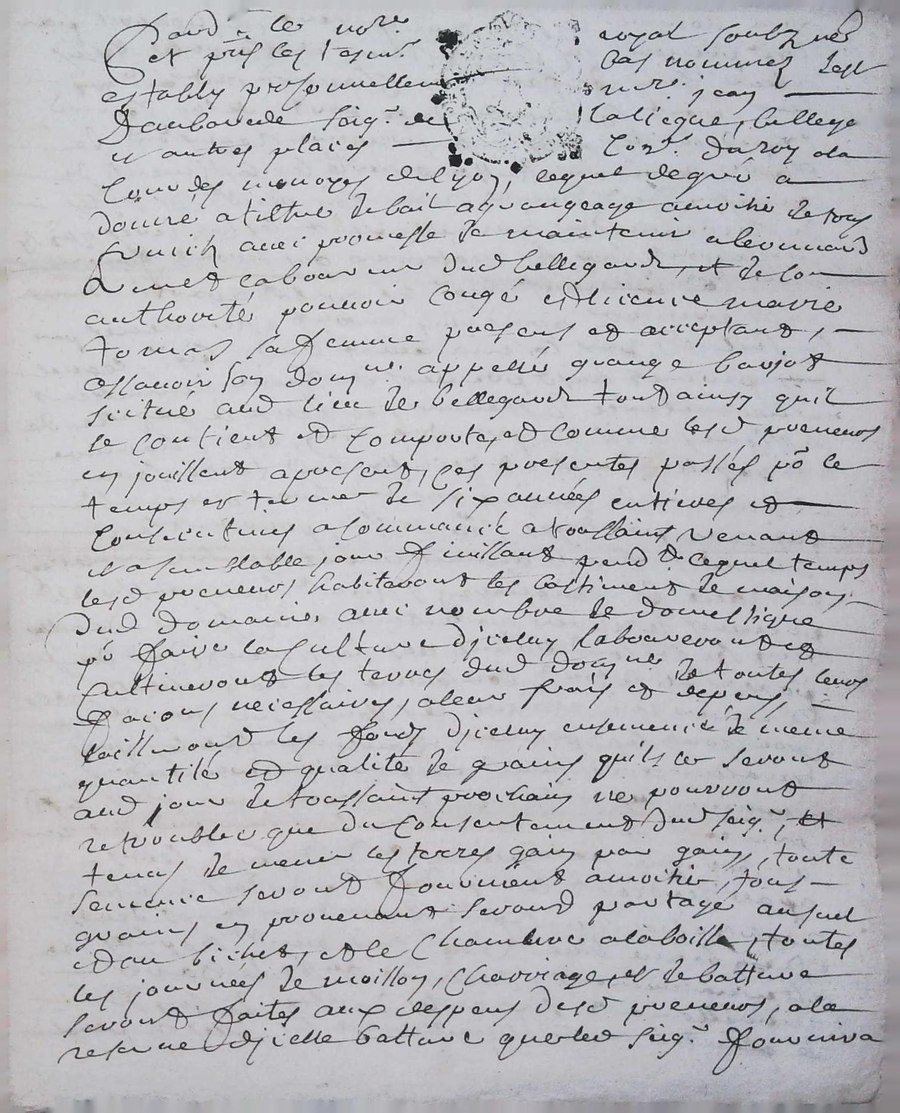 Pard. le nore royal soubzné
et pñs les tesmi bas nommez s'est
estably personnellemt mre. jean
Daubarede seigr. de la liegue, bellega
et autres places Conr. du roy a la
Cour des monoyes de Lyon, lequel de gré a
donné a tiltre de bail a grangeage a moitié de tous
fruitz avec promesse de maintenir a leonnard
laboureur dud bellegarde, et de son
authorité pouvoir congé et licence marie
tomas sa femme presens et acceptant,
assavoir son domne. appellé grange barjot
scitué aud lieu de bellegarde tout ainsy quil
se contient et comporte, et comme lesd preneurs
en jouissent apresent, ces presentes passés pr le
temps et terme de six années entieres et
consecutives a commancé a toussaints venant
et a semblable jour finissant pendt. lequel temps
lesd preneurs habiteront les bastiment de maison
dud domaine, avec nombre de domestique
pr faire la culture d'jceluy laboureront et
cultiveront les terres dud domne de toutes leurs
façons necessaires, a leur frais et depens,
laisseront les fonds d'jceluy ensemencé de meme
quantité et qualité de grains quils ce seront
aud jour de toussaint prochain ne pourront
retroubler que du consentement dud seigr, et
tenus de mener les terres gain par gain, toute
semence seront fournient a moitié, tous
grains en provenant seront partagé au suel
et au bichet, et le chambre a la boille, toutes
les journées de moisson, charriage, et de batture
seront faites aux despens desd preneurs, a la
reserve d'jcelle batture que led seigr. fournira